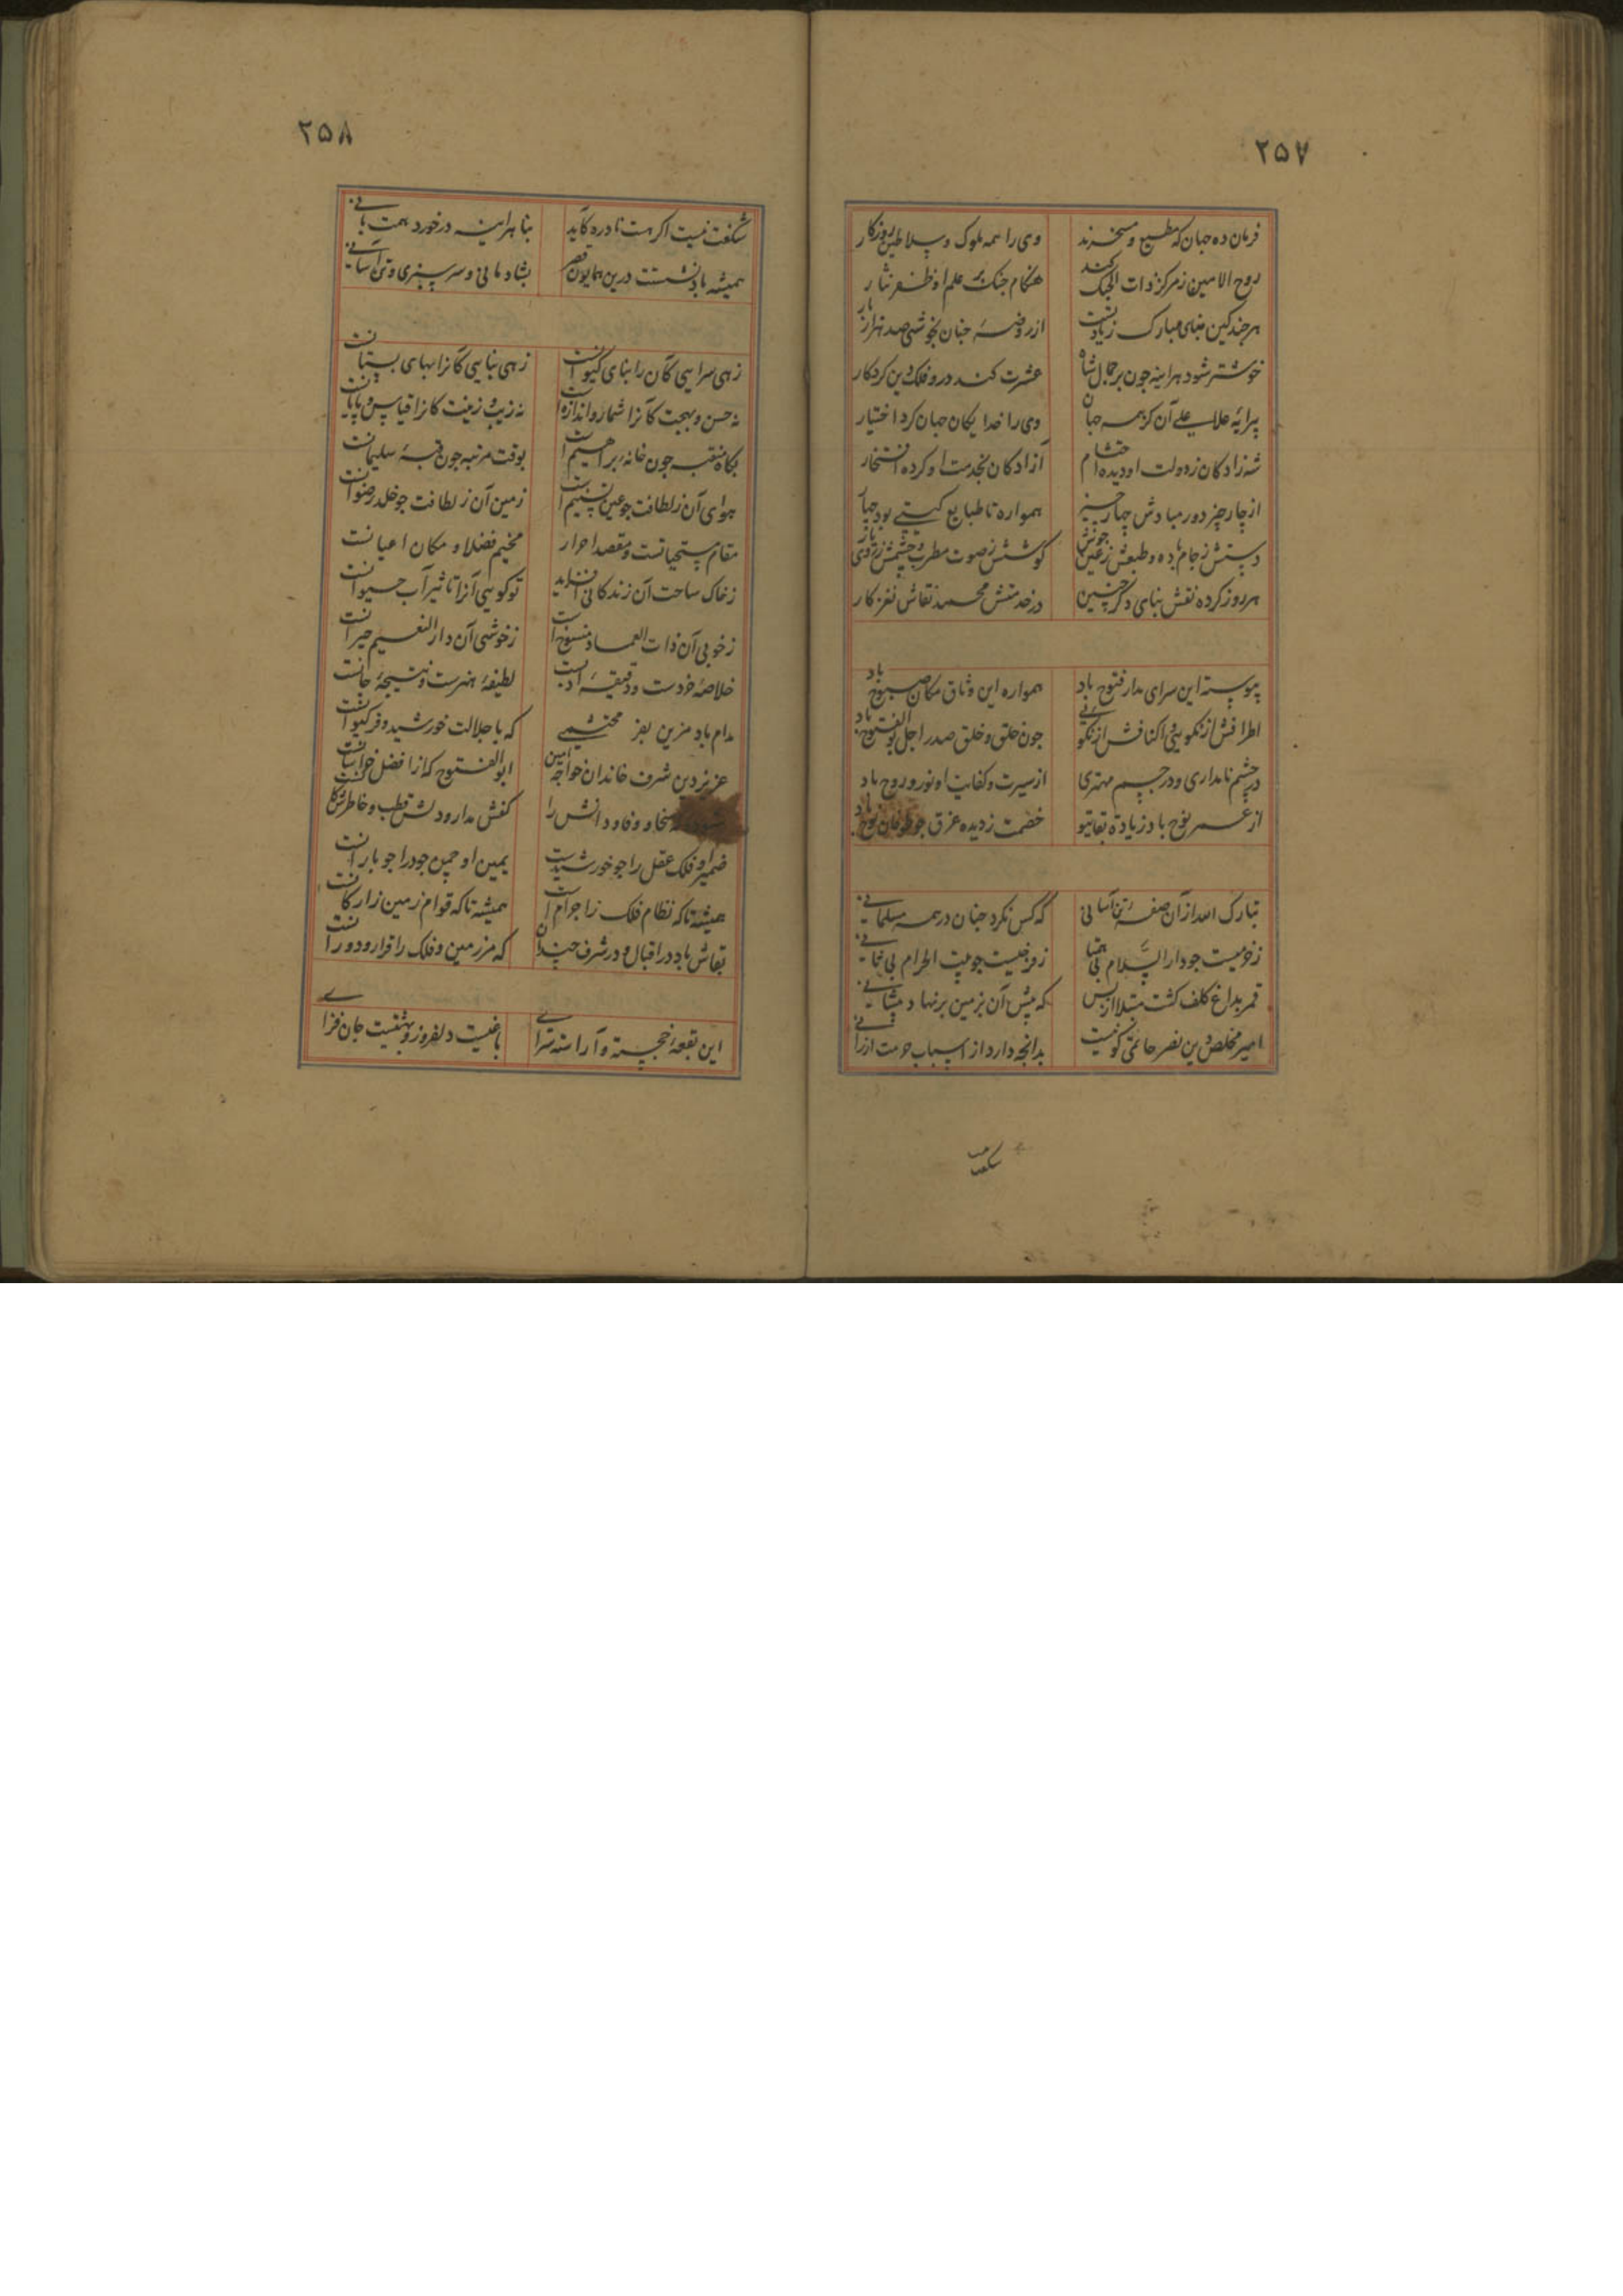 ۲۵۷
فرمان ده جهان که مطیع و مسخرند وی را همه ملوک و سلاطین روزکار
روح الامین ز مرکز ذات الحبک کند هنکام جنک بر علم او ظفر نثار
هرچند کین بنای مبارک زیادتست از روضهٔ جنان بخوشی صد هزار بار
خوشتر شود هراینه چون بر جمال شاه عشرت کند درو فلک دین کردکار
پیرایهٔ علا علی آن کز همه جهان وی را خدایکان جهان کرد اختیار
شه زادکان ز دولت او دیده احتشام آزادکان بخدمت او کرده افتخار
از چار چیز دور مبادش چهار چیز همواره تا طبایع کیتی بود چهار
دستش ز جام باده و طبعش ز عیش خوش کوشش ز صوت مطرب و چشمش ز روی یار
هر روز کرده نقش بنای دکر چنین در خدمتش محمد نقاش نغز کار
پیوسته این سرای مدار فتوح باد همواره این وثاق مکان صبوح باد
اطرافش از نکویی و اکنافش از نکویی جون خلق و خلق صدر اجل بوالفتوح باد
در چشم نامداری و در جسم مهتری از سیرت و کفایت او نور و روح باد
از عمر نوح باد زیادة بقای تو خصمت ز دیده غرق جو طوفان نوح باد
تبارک الله از آن صفه تن آسانی که کس نکرد جنان در همه مسلمانی
ز خرمیست جو دار السلام بی همتا ز فرخیست جو بیت الحرام بی ثانی
قمر بداغ کلف کشت مبتلا از بس که پیش آن بزمین برنهاد پیشانی
امیر مخلص دین نصر حاتمی کو نیست بدانجه دارد از اسباب حرمت ارزانی
شکفت
۲۵۸
شکفت نیست اکر هست نادره کاید بنا هراینه درخورد همت بانی
همیشه باد نشستت درین همایون قصر بشادمانی و سرسبزی و تن آسانی
زهی سرایی کان را بنای کیوانست زهی بنایی کانرا بهای بستانست
نه حسن و بهجت کانرا شمار و اندازه است نه زیب و زینت کانرا قیاس و پایانست
بکاه منقبه جون خانهٔ براهیم است بوقت مرتبه جون قبهٔ سلیمانست
هوای آن ز لطافت جو عین تسنیم است زمین آن ز لطافت جو خلد رضوانست
مقام سبحیانست و مقصد احرار مخیم فضلا و مکان اعیانست
ز خاک ساحت آن زندکانی افزاید تو کویی آنرا تاثیر آب حیوانست
ز خوبی آن ذات العماد منسوخ است ز خوشی آن دار النعیم حیرانست
خلاصهٔ خردست و دقیقهٔ ادبست لطیفهٔ هنرست و نتیجهٔ جانست
مدام باد مزین بفر محتشمی که با جلالت خورشید و فر کیوانست
عزیز دین شرف خاندان خواجه امین ابوالفتوح که از افضل خراسانست
سخا و وفا و دانش را کفش مدار و دلش قطب و خاطرش کانست
ضمیر او فلک عقل را جو خورشیدست یمین او چمن جود را جو بارانست
همیشه تا که نظام فلک ز اجرام است همیشه تا که قوام زمین ز ارکانست
بقاش باد در اقبال و در شرف جندان که مر زمین و فلک را قرار و دورانست
این بقعهٔ خجسته و آراسته سرای باغیست دلفروز و بهشتیست جان فزای